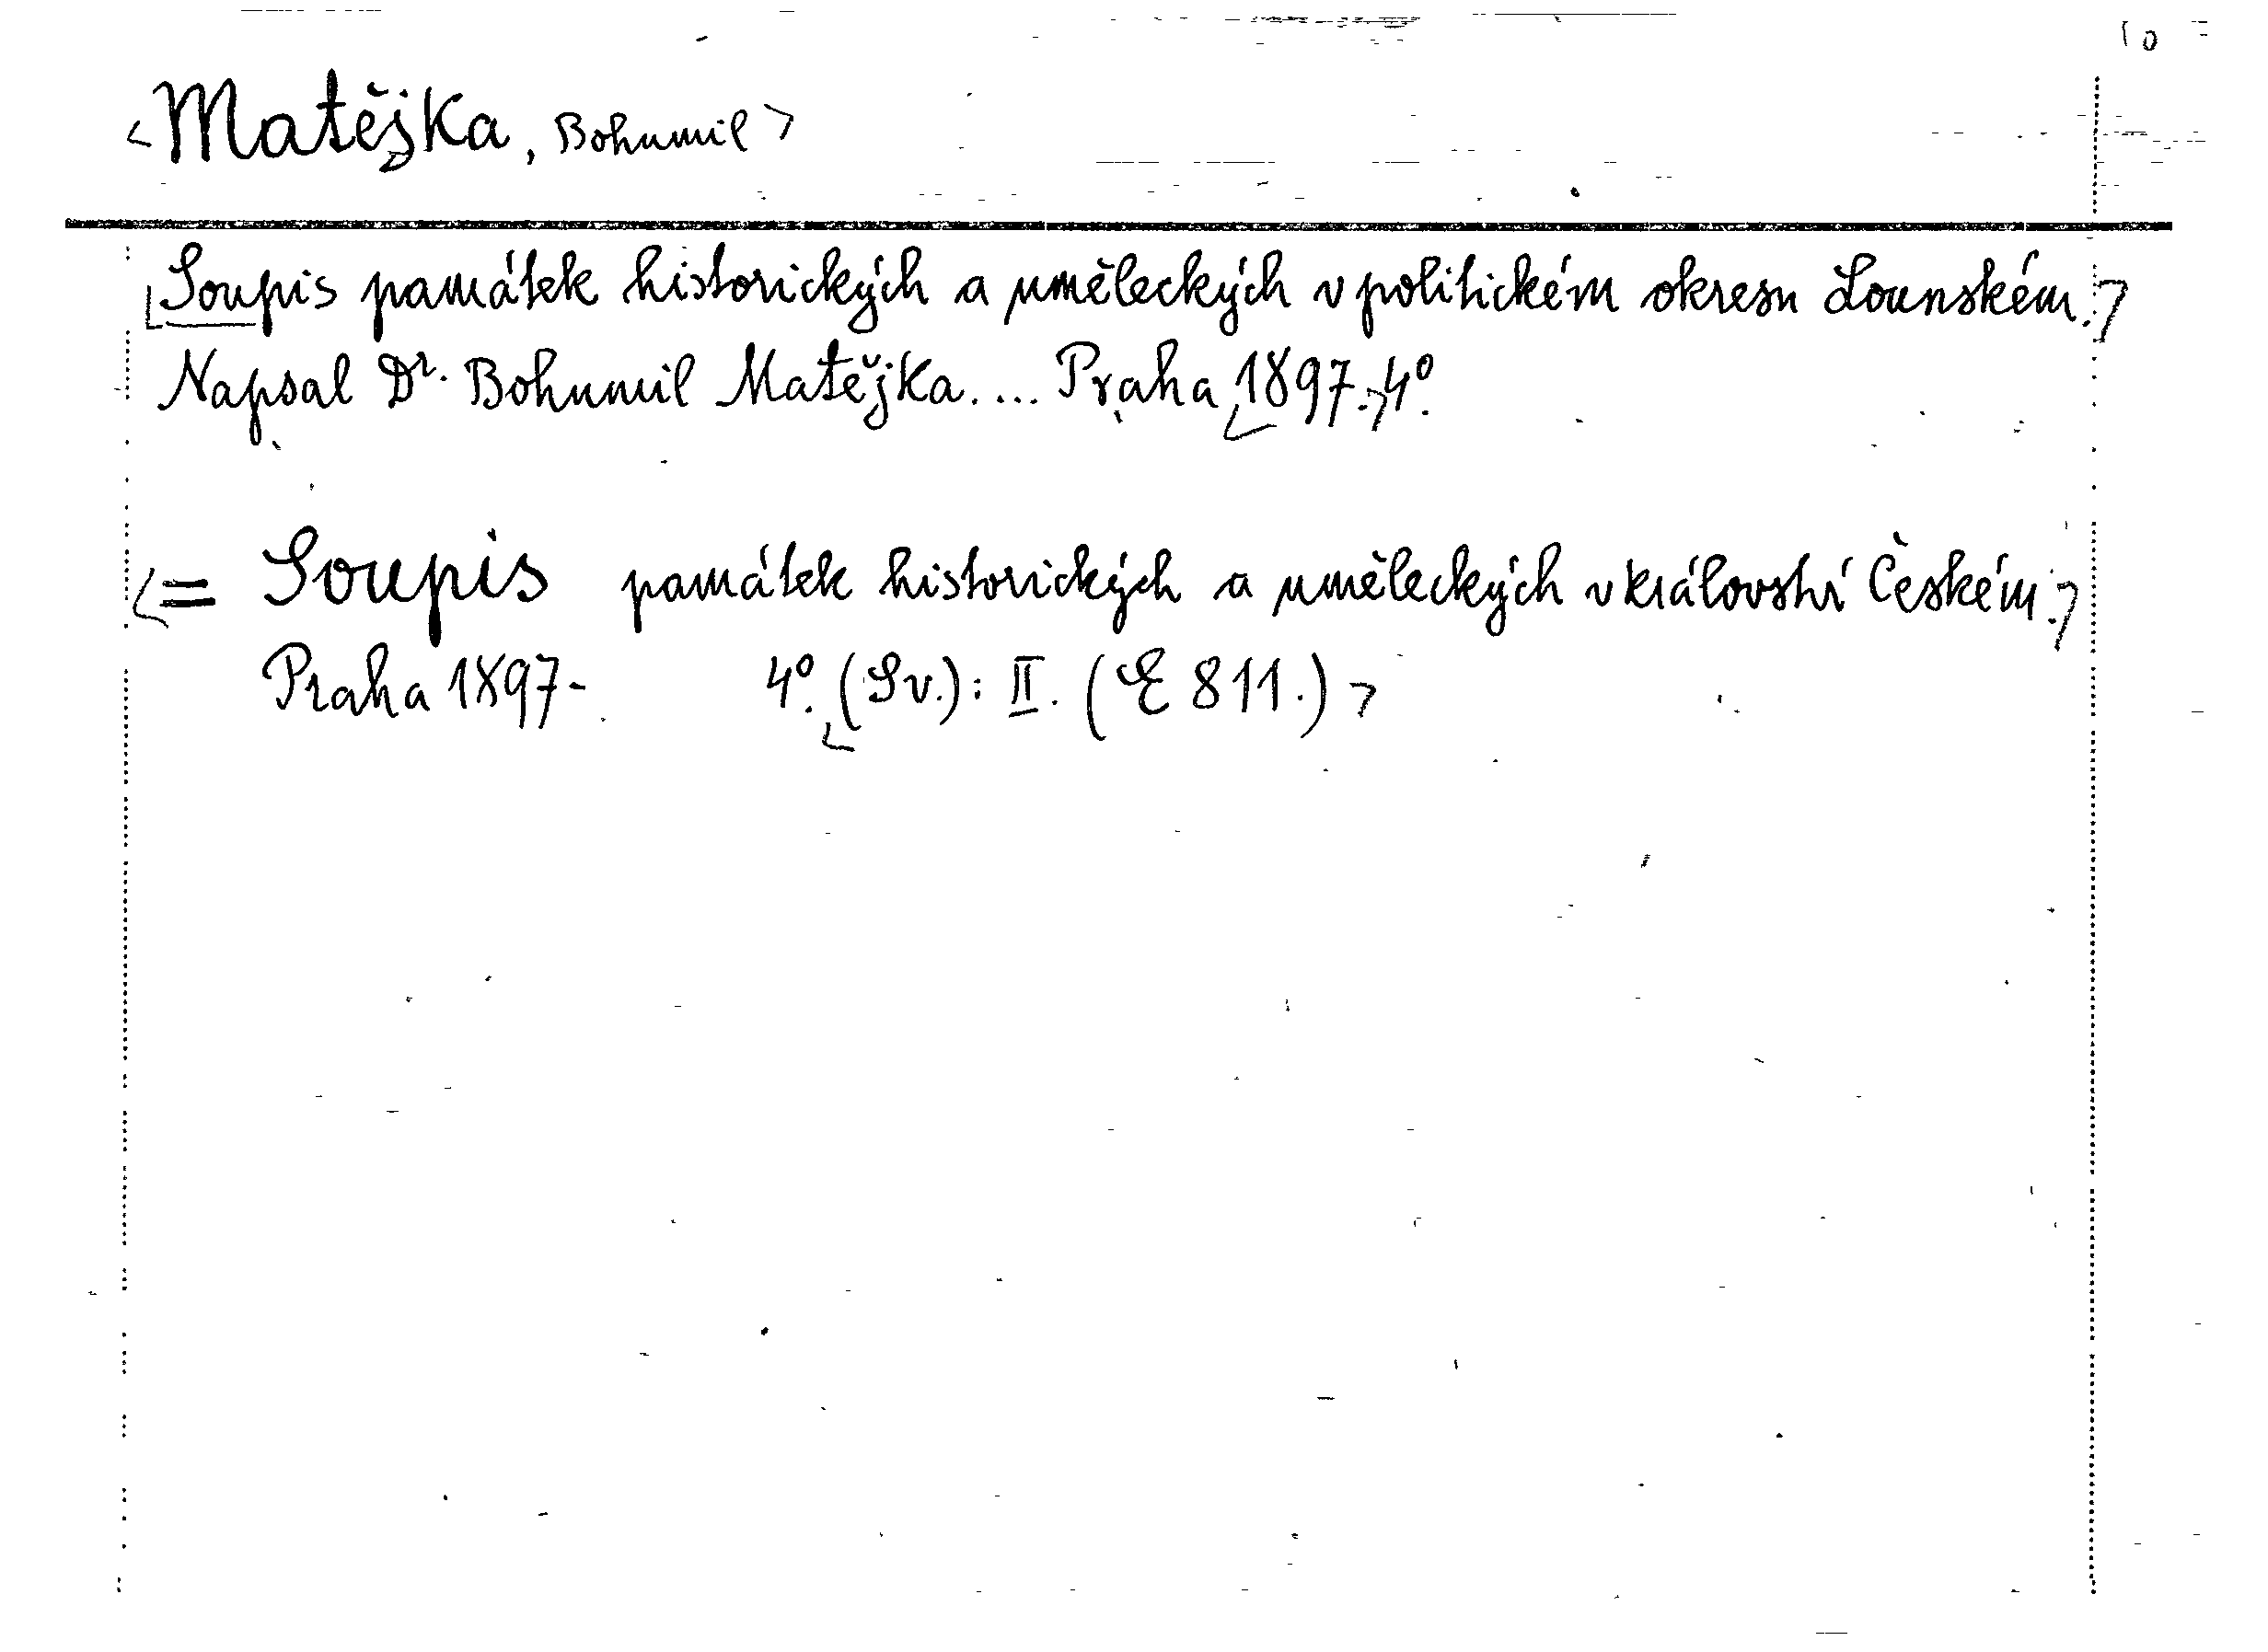 <Matějka, Bohumil>
[Soupis památek historických a uměleckých v politickém okresu Lounském.]
Napsal Dr. Bohumil Matějka. ... Praha <1897.> 4º.
<= Soupis památek historických a uměleckých v království Českém.>
Praha 1897- 4º. <(Sv.): II. (E 811.)>